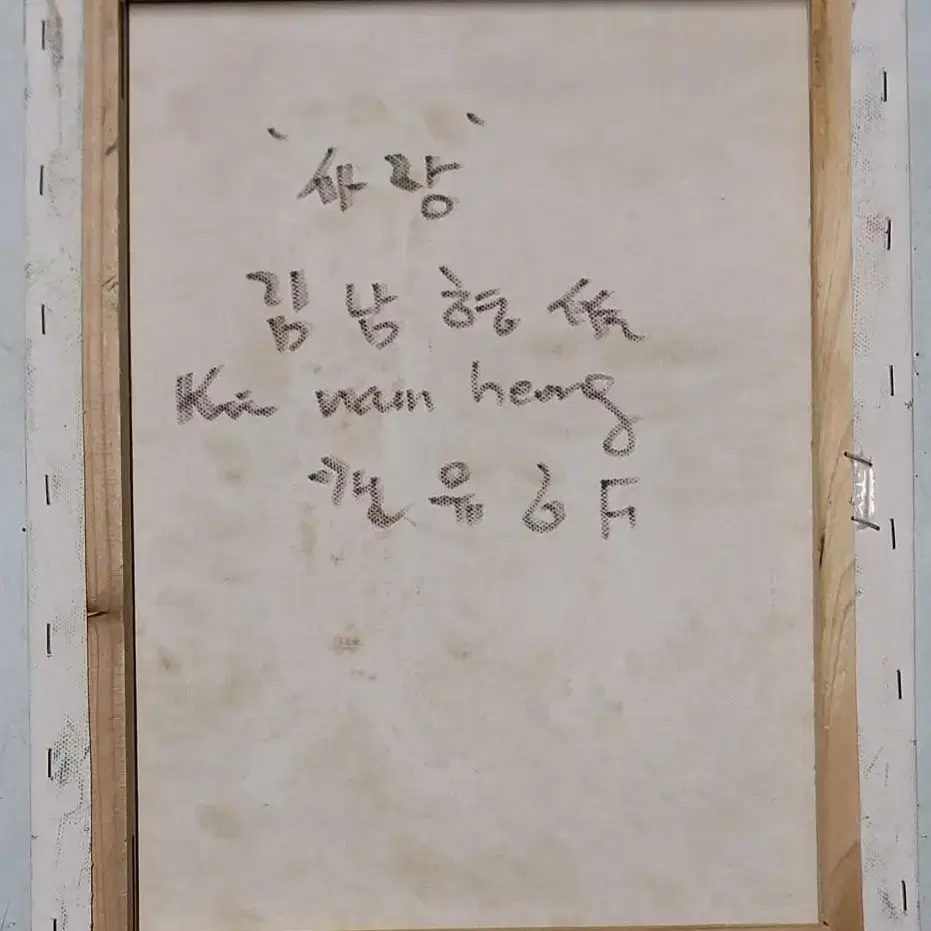 '사랑'
김 남 형 作
Kim nam heng
캔 유 6F